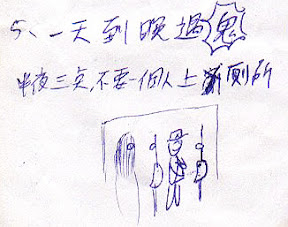 5、一天到晚遇鬼
半夜三点,不要一個人上厕所